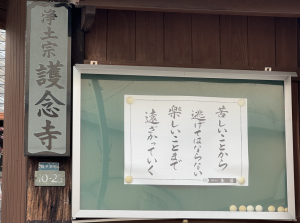 浄土宗
護念寺
10-25
苦しいことから
逃げてはならない
楽しいことまで
遠ざかっていく